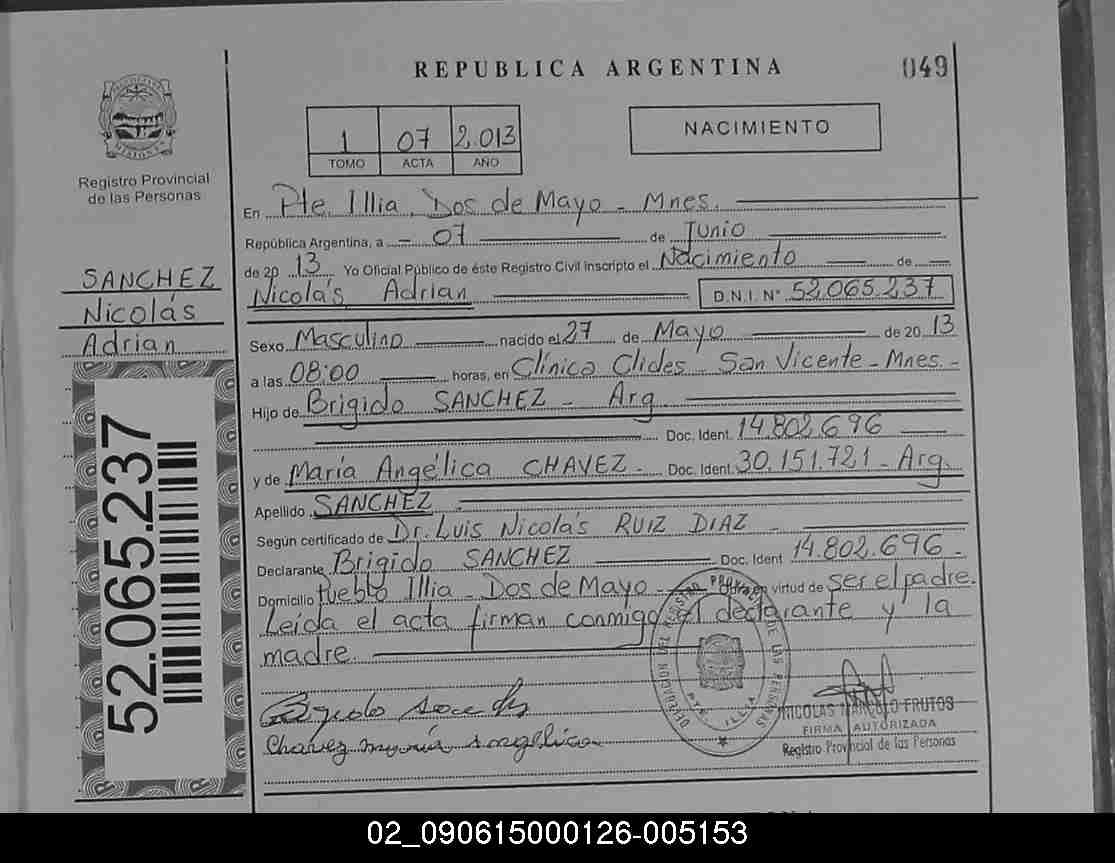 REPUBLICA ARGENTINA
049
MISIONES
Registro Provincial
de las Personas
1 07 2.013
TOMO ACTA AÑO
NACIMIENTO
SANCHEZ
Nicolás
Adrian
52.065.237
En Pte. Illia. Dos de Mayo - Mnes.
República Argentina, a - 07 de Junio
de 20 13 Yo Oficial Público de éste Registro Civil inscripto el Nacimiento de
Nicolás Adrian D.N.I. N° 52.065.237
Sexo Masculino nacido el 27 de Mayo de 20 13
a las 08:00 horas, en Clínica Clides - San Vicente - Mnes. -
Hijo de Brigido SANCHEZ - Arg.
Doc. Ident. 14.802.696
y de María Angélica CHAVEZ - Doc. Ident. 30.151.721 - Arg.
Apellido SANCHEZ
Según certificado de Dr. Luis Nicolás RUIZ DIAZ -
Declarante Brigido SANCHEZ Doc. Ident 14.802.696 -
Domicilio Pueblo Illia - Dos de Mayo - Obra en virtud de ser el padre.
Leída el acta firman conmigo el declarante y la
madre.
Chavez María Angelica
DELEGACION DEL REGISTRO PROVINCIAL DE LAS PERSONAS
PTE. ILLIA
FRUTOS
FIRMA AUTORIZADA
Registro Provincial de las Personas
02_090615000126-005153